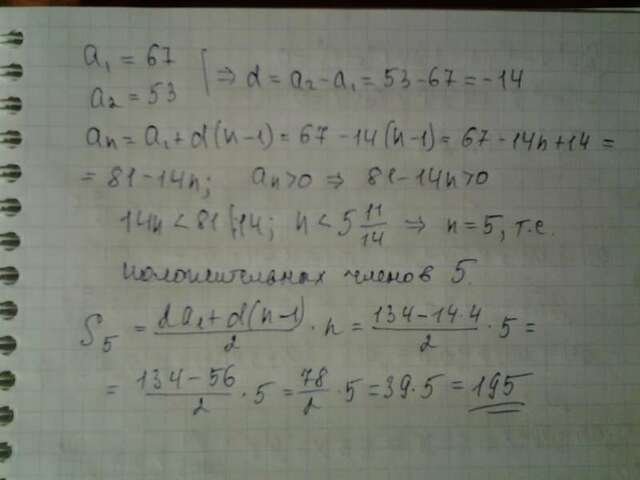 a₁ = 67
a₂ = 53 ⇒ d = a₂ - a₁ = 53 - 67 = -14
aₙ = a₁ + d(n-1) = 67 - 14(n-1) = 67 - 14n + 14 =
= 81 - 14n; aₙ > 0 ⇒ 81 - 14n > 0
14n < 81 |:14; n < 5 11/14 ⇒ n = 5, т.е.
положительных членов 5.
S₅ = (2a₁ + d(n-1))/2 · n = (134 - 14·4)/2 · 5 =
= (134 - 56)/2 · 5 = 78/2 · 5 = 39 · 5 = 195